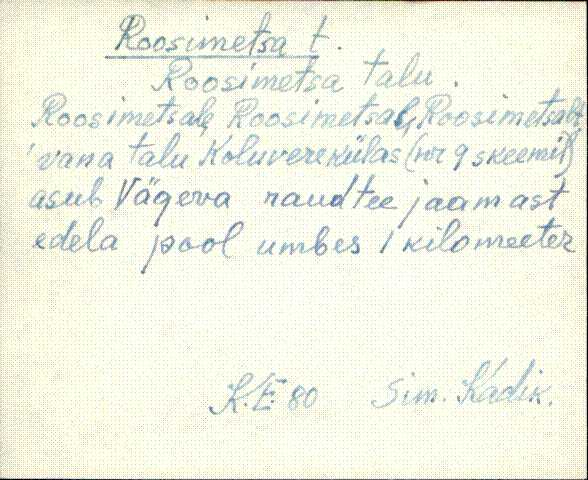 Roosimetsa t.
Roosimetsa talu.
Roosimetsale, Roosimetsal, Roosimetsalt
vana talu Koluverekülas (nr 9 skeemil)
asub Vägeva raudtee jaamast
edela pool umbes 1 kilomeeter
K.E. 80 Sim. Kadik.